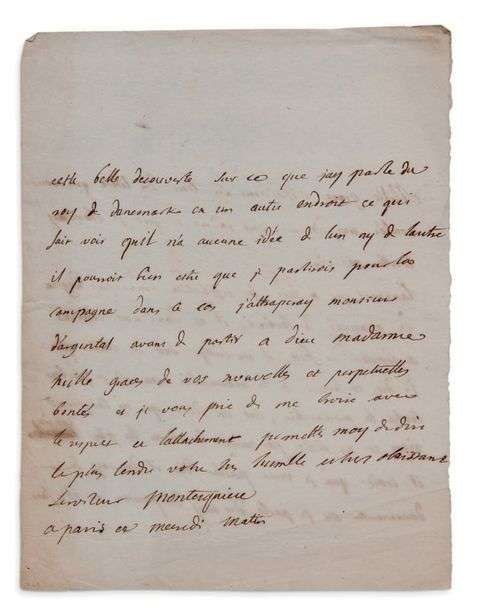 cette belle decouverte sur ce que jay parlé du
roy de danemark en un autre endroit ce qui
fait voir quil n'a aucune idée de lun ny de lautre
il pourroit bien estre que je partirois pour la
campagne dans ce cas j'attraperay monsieur
d'argental avant de partir a dieu madame
mille graces de vos nouvelles et perpetuelles
bontés et je vous prie de me croire avec
le respect et lattachement permettes moy de dire
le plus tendre votre tres humble et tres obeissant
serviteur Montesquieu
a paris ce mercredi matin